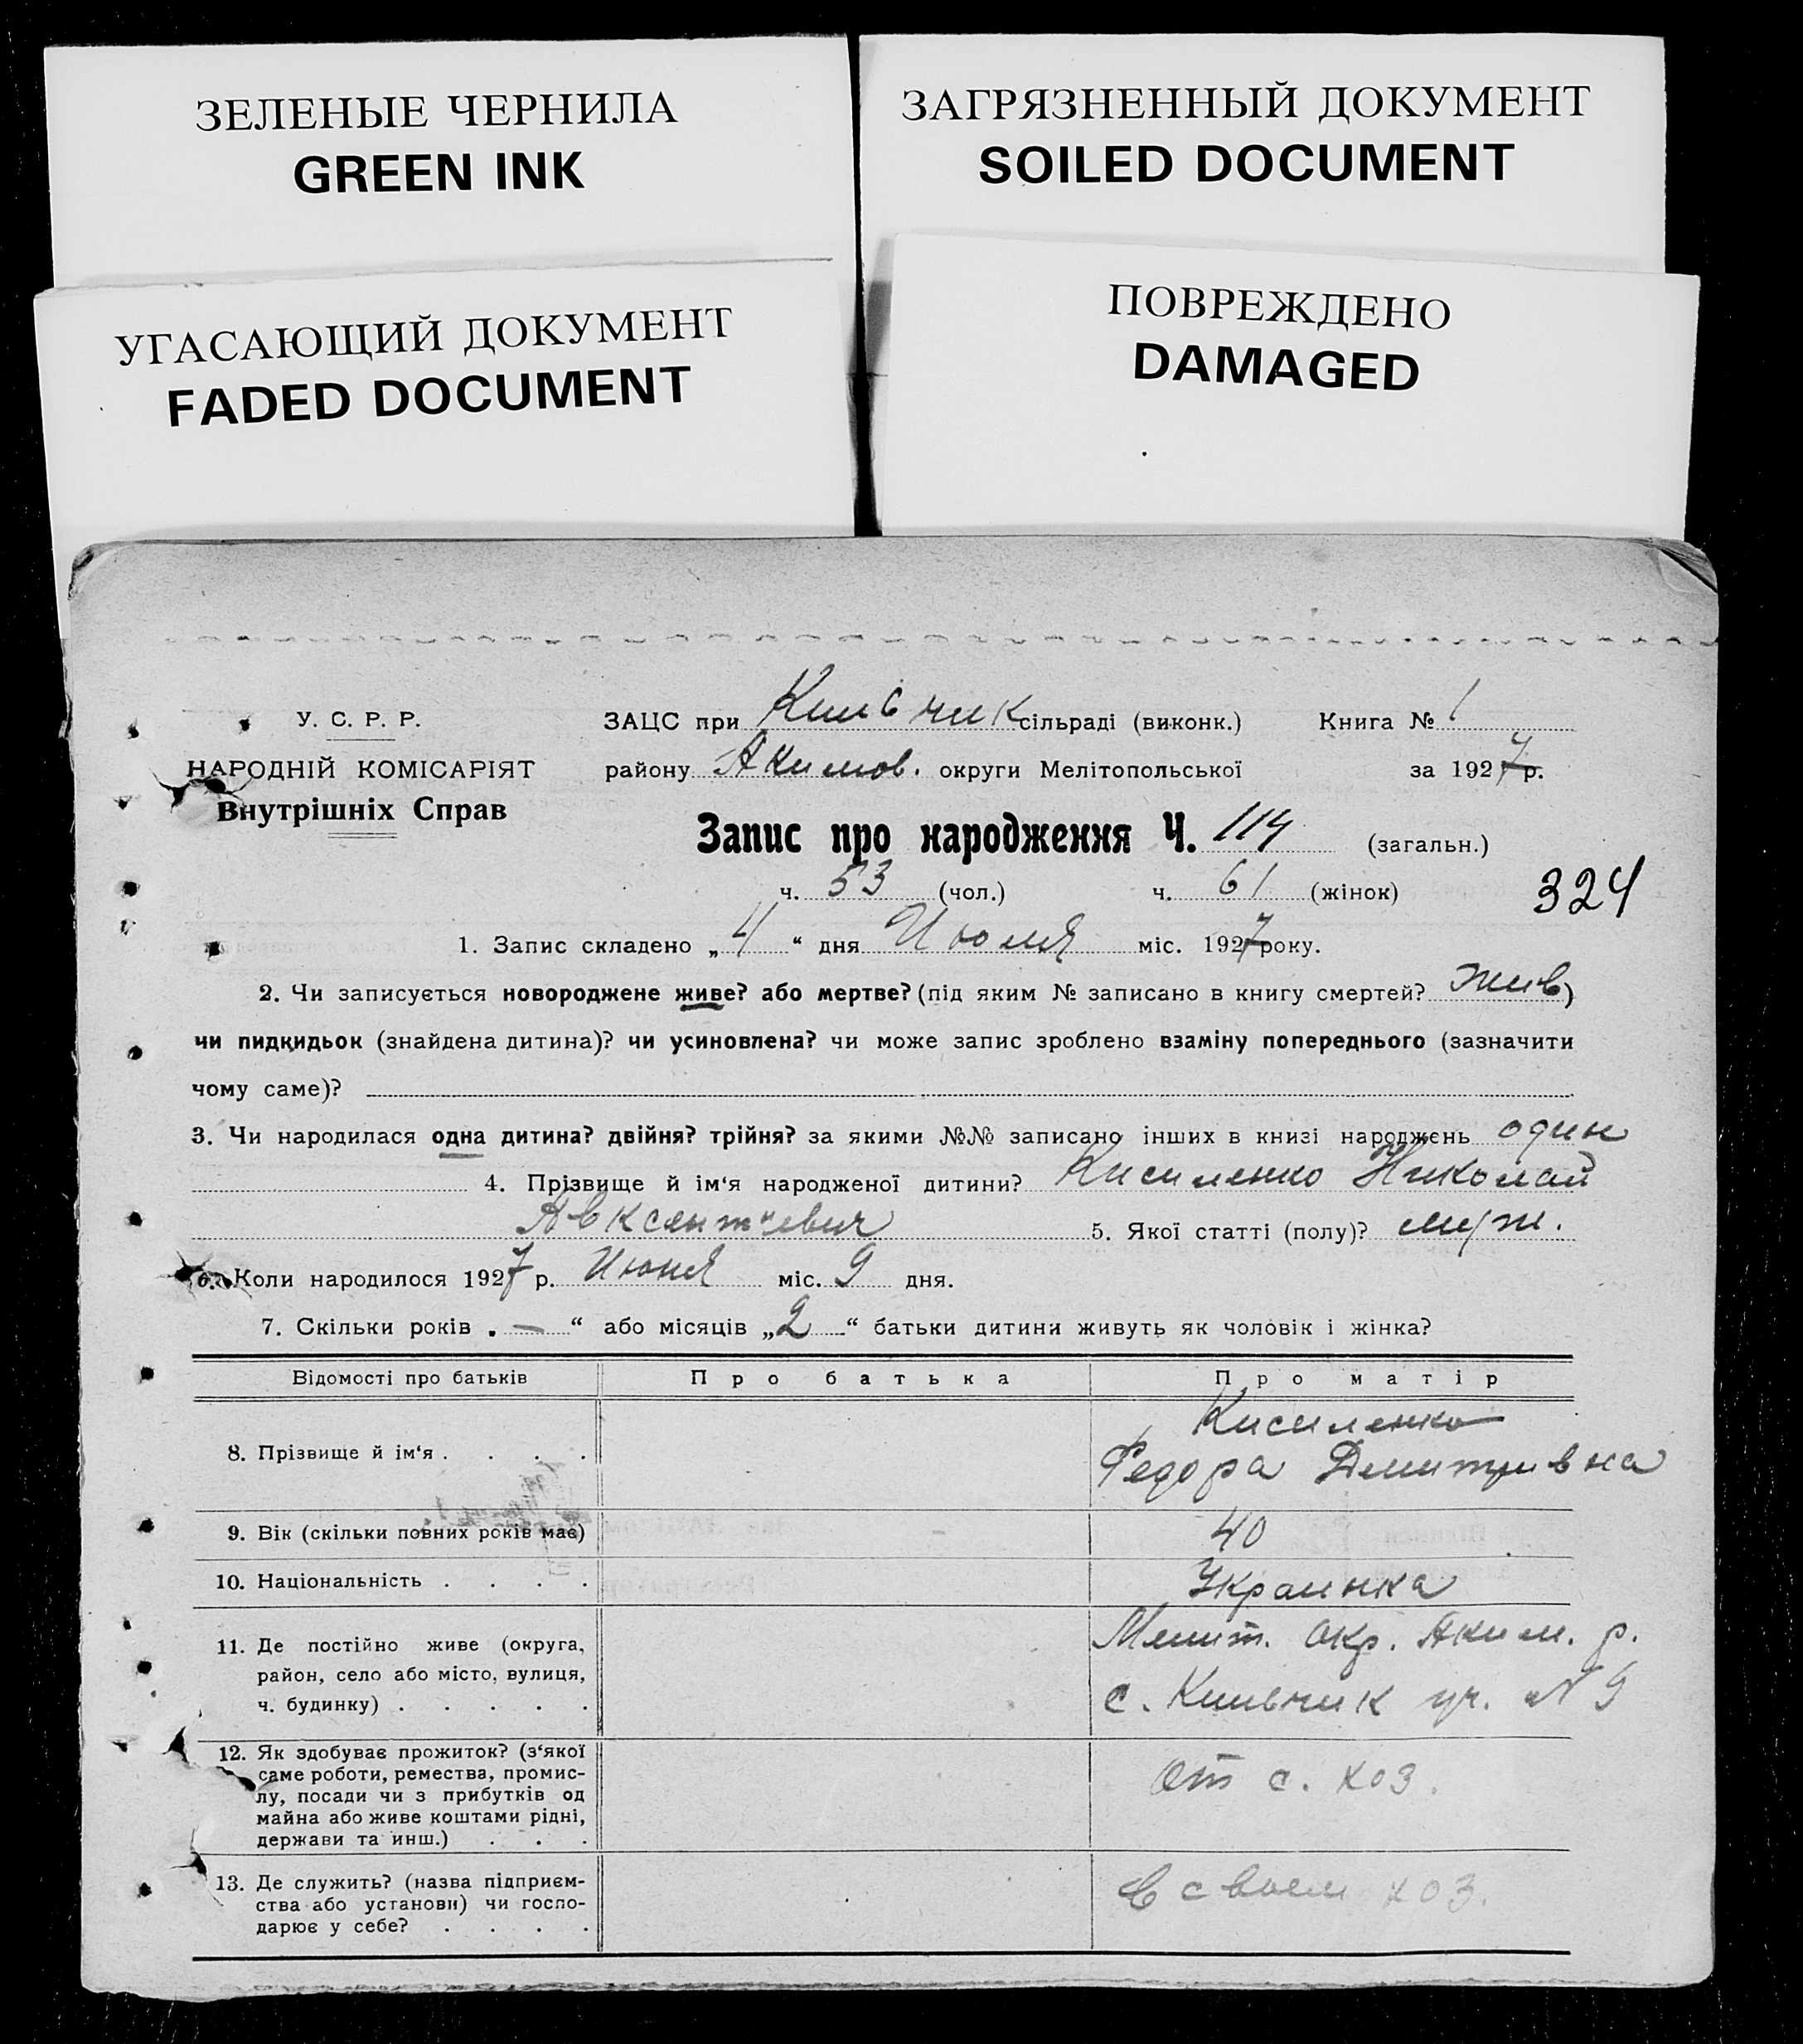 ЗЕЛЕНЫЕ ЧЕРНИЛА
GREEN INK
ЗАГРЯЗНЕННЫЙ ДОКУМЕНТ
SOILED DOCUMENT
УГАСАЮЩИЙ ДОКУМЕНТ
FADED DOCUMENT
ПОВРЕЖДЕНО
DAMAGED
У. С. Р. Р.
НАРОДНІЙ КОМІСАРІЯТ
Внутрішніх Справ
ЗАЦС при Кильчик сільраді (виконк.) Книга № 1
району Акимов. округи Мелітопольської за 1927 р.
Запис про народження Ч. 114 (загальн.)
ч. 53 (чол.) ч. 61 (жінок)
324
1. Запис складено „4“ дня Июля міс. 1927 року.
2. Чи записується новороджене живе? або мертве? (під яким № записано в книгу смертей? жив)
чи пидкидьок (знайдена дитина)? чи усиновлена? чи може запис зроблено взаміну попереднього (зазначити
чому саме)?
3. Чи народилася одна дитина? двійня? трійня? за якими №№ записано інших в книзі народжень один
4. Прізвище й ім‘я народженої дитини? Кисиленко Николай
Авксентиевич 5. Якої статті (полу)? муж.
6. Коли народилося 1927 р. Июня міс. 9 дня.
7. Скільки років „—“ або місяців „2“ батьки дитини живуть як чоловік і жінка?
Відомості про батьків Про батька Про матір
8. Прізвище й ім‘я . . . . Кисиленко
Федора Дмитривна
9. Вік (скільки повних років має) 40
10. Національність . . . . Украинка
11. Де постійно живе (округа,
район, село або місто, вулиця,
ч. будинку) . . . . .
Мелит. окр. Аким. р.
с. Кильчик уч. N 9
12. Як здобуває прожиток? (з‘якої
саме роботи, ремества, промис-
лу, посади чи з прибутків од
майна або живе коштами рідні,
держави та инш.) . . .
от с. хоз.
13. Де служить? (назва підприєм-
ства або установи) чи госпо-
дарює у себе? . . . .
в своем хоз.